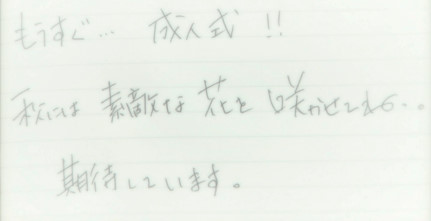 もうすぐ… 成人式!!
秋には 素敵な 花を 咲かせてね。
期待しています。